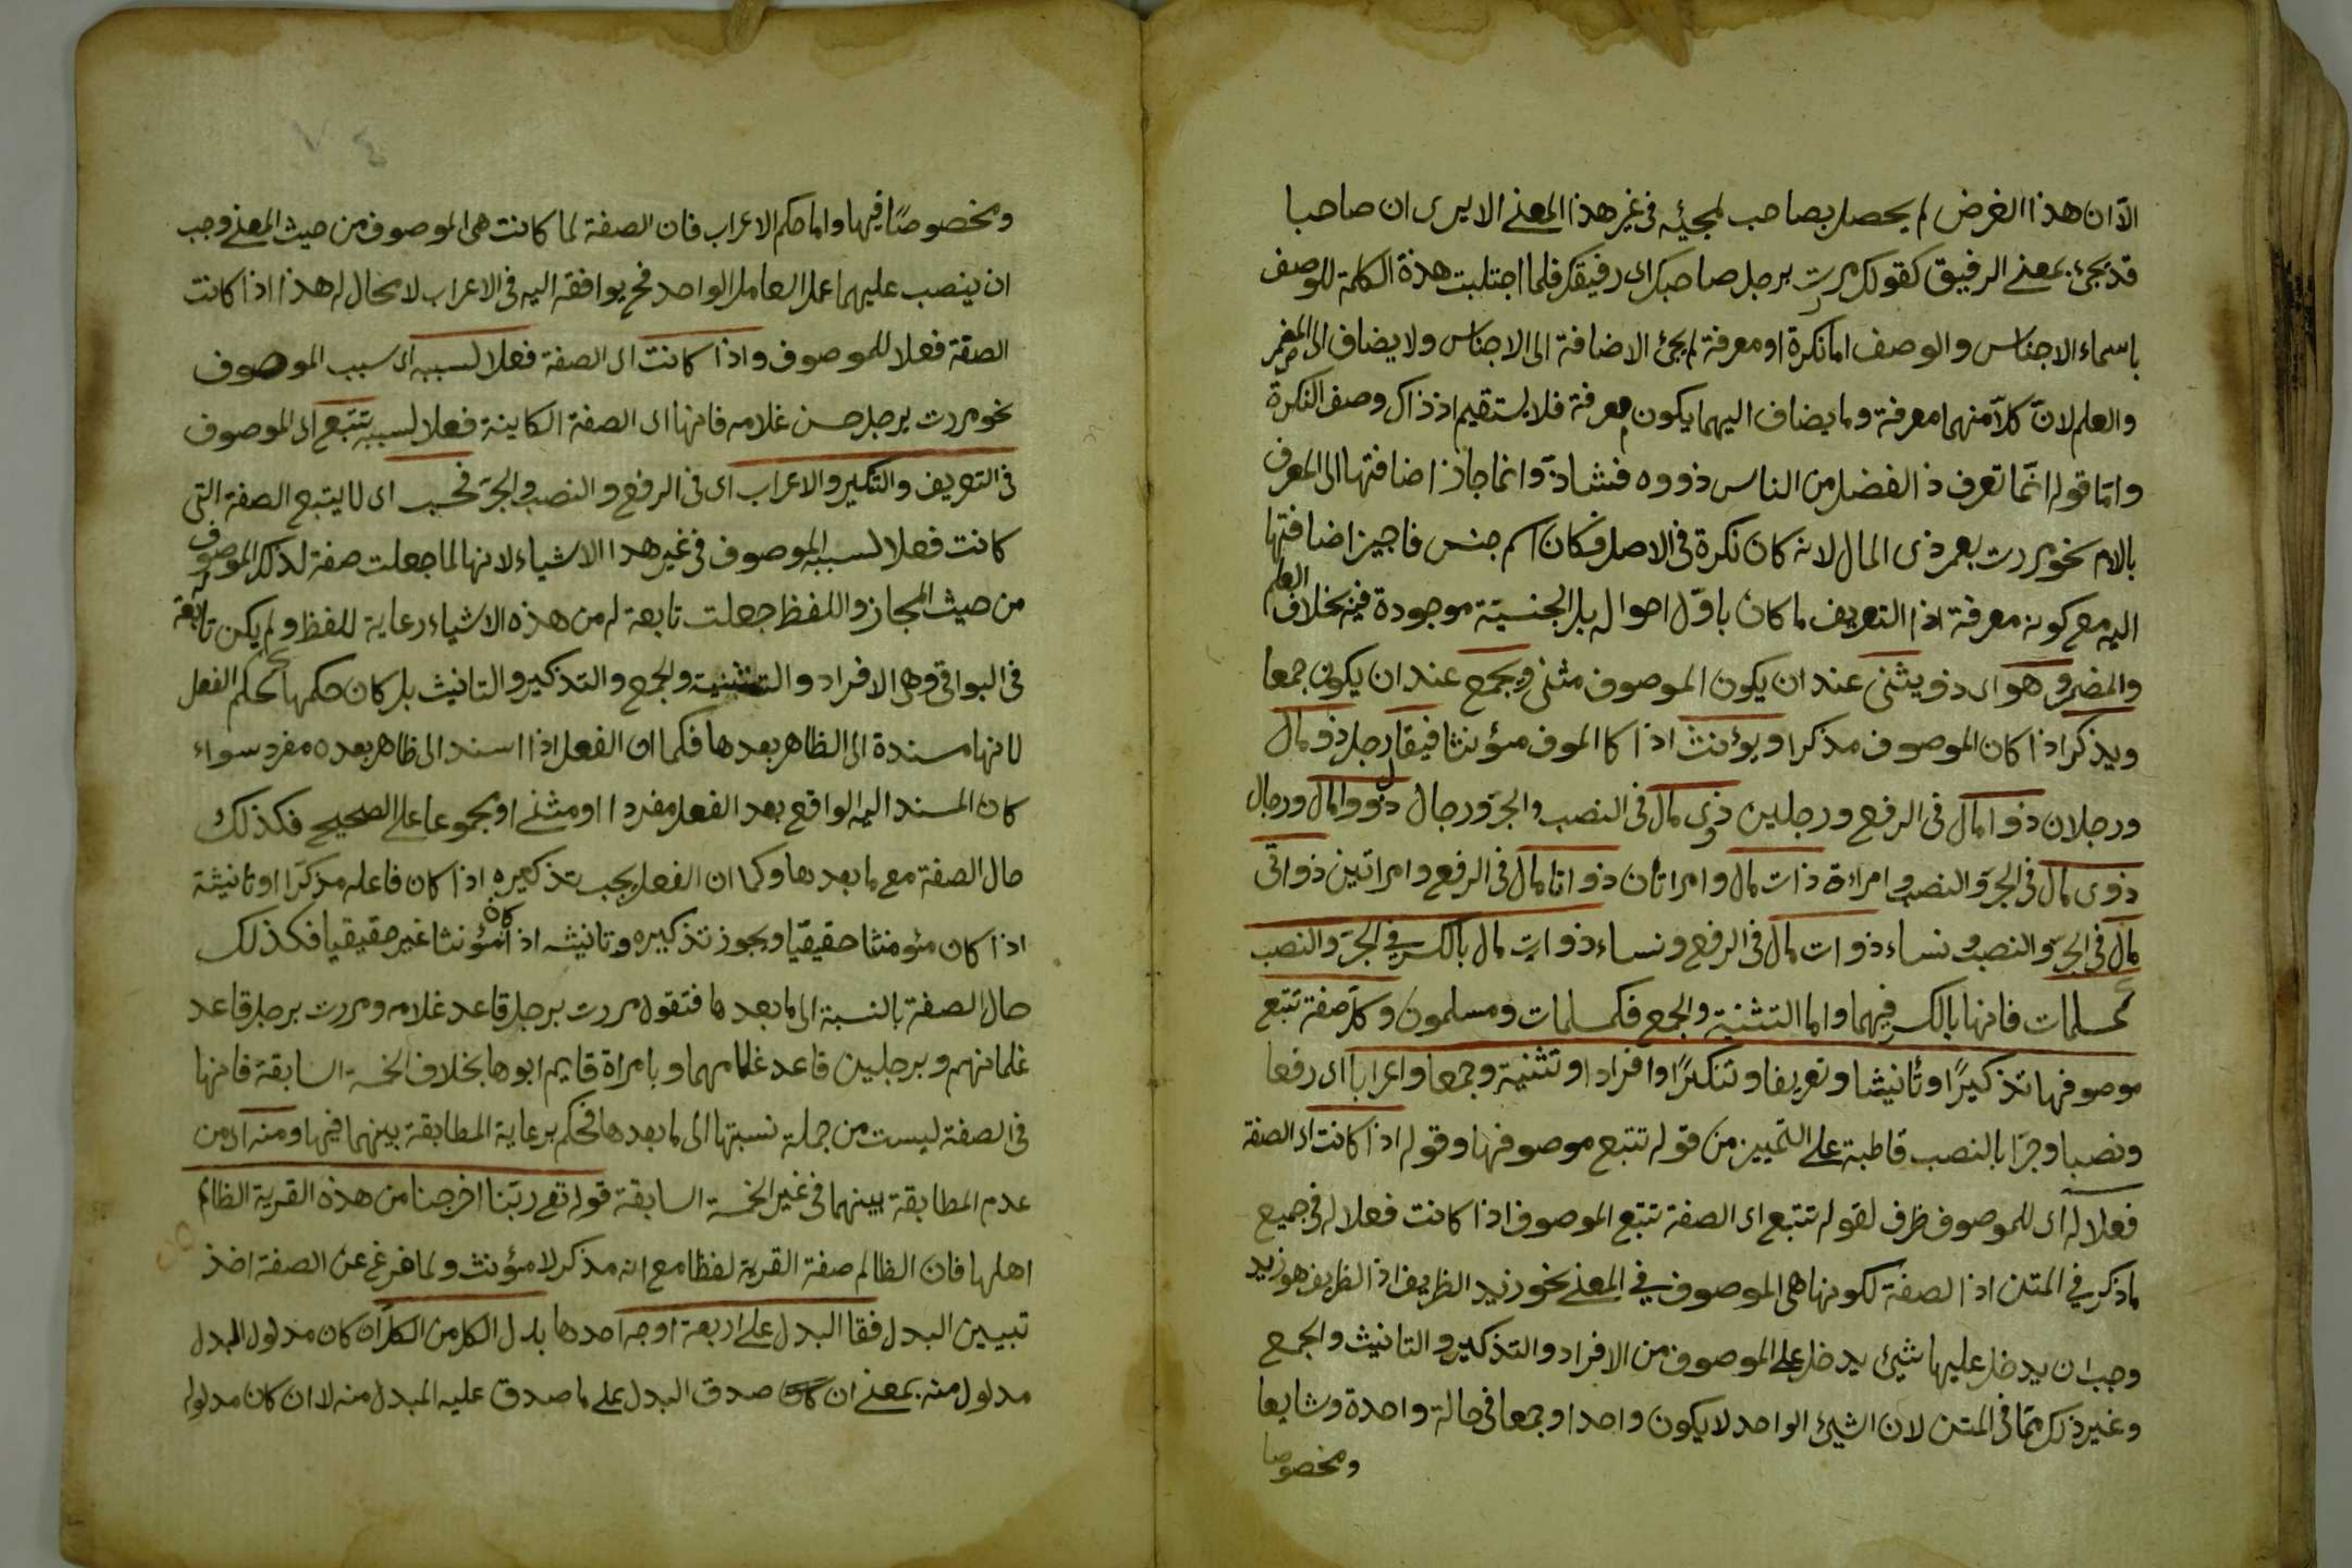 الا ان هذا الغرض لم يحصل بصاحب لمجيئه فى غير هذا المعنى الا يرى ان صاحبا
قد يجئ بمعنى الرفيق كقولك مررت برجل صاحبك اى رفيقك فلما اجتلبت هذة الكلمة للوصف
باسماء الاجناس والوصف اما نكرة او معرفة لم يجئ الاضافة الى الاجناس ولا يضاف الى المضمر
والعلم لان كلا منهما معرفة وما يضاف اليهما يكون معرفة فلا يستقيم اذ ذاك وصف النكرة
واما قوله انما تعرف ذا الفضل من الناس ذووه فشاذ وانما جاز اضافتها الى المعرف
بالام نحو مررت بعمر ذى المال لانه كان نكرة فى الاصل فكان اسم جنس فاجيز اضافتها
اليه مع كونه معرفة اذا التعريف ما كان باول احواله بل الجنسية موجودة فيه بخلاف العلم
والمضمر وهو اى ذو يثنى عند ان يكون الموصوف مثنى ويجمع عند ان يكون جمعا
ويذكر اذا كان الموصوف مذكرا ويؤنث اذا كا الموف مؤنثا فيقال رجل ذو مال
ورجلان ذوا مال فى الرفع ورجلين ذوى مال فى النصب والجر ورجال ذووا مال ورجال
ذوى مال فى الجر والنصب وامراءة ذات مال وامراتان ذواتا مال فى الرفع وامراتين ذواتى
مال فى الجر والنصب ونساء ذوات مال فى الرفع ونساء ذوات مال بالكسر فى الجر والنصب
كمسلمات فانها بالكسر فيهما واما التثنية والجمع فكمسلمات ومسلمون وكل صفة تتبع
موصوفها تذكيرًا او تأنيثا وتعريفا وتنكيرًا وافرادا وتثنية وجمعا واعرابا اى رفعا
ونصبا وجرا بالنصب قاطبة على التمييز من قوله تتبع موصوفها وقوله اذا كانت اى الصفة
فعلا له اى للموصوف ظرف لقوله تتبع اى الصفة تتبع الموصوف اذا كانت فعلا له فى جميع
ما ذكر فى المتن اذ الصفة لكونها هى الموصوف فى المعنى نحو زيد الظريف اذ الظريف هو زيد
وجب ان يدخل عليها شيئ يدخل على الموصوف من الافراد والتذكير والتانيث والجمع
وغير ذلك مما فى المتن لان الشيئ الواحد لا يكون واحدا وجمعا فى حالة واحدة وشايعا
ومخصوصا
ومخصوصًا فيها واما حكم الاعراب فان الصفة لما كانت هى الموصوف من حيث المعنى وجب
ان ينصب عليهما عمل العامل الواحد فح يوافقه اليه فى الاعراب لا محال له هذا اذا كانت
الصفة فعلا للموصوف واذا كانت اى الصفة فعلا لسببه اى سبب الموصوف
نحو مررت برجل حسن غلامه فانها اى الصفة الكاينة فعلا لسببه تتبع اى الموصوف
فى التعريف والتنكير والاعراب اى فى الرفع والنصب والجر فحسب اى لا يتبع الصفة التى
كانت فعلا لسببه الموصوف فى غير هذا الاشياء لانها لما جعلت صفة لذلك الموصوف
من حيث المجاز واللفظ جعلت تابعة له من هذه الاشياء رعاية للفظ ولم يكن تابعة له
فى البواقى وهى الافراد والتثنية والجمع والتذكير والتانيث بل كان حكمها كحكم الفعل
لانها مسندة الى الظاهر بعدها فكما ان الفعل اذا اسند الى ظاهر بعده مفرد سواء
كان المسند اليه الواقع بعد الفعل مفردا او مثنى او مجموعا على الصحيح فكذلك
حال الصفة مع ما بعدها وكما ان الفعل يجب تذكيره اذا كان فاعله مذكرا او تانيثة
اذا كان مئومنثا حقيقيا ويجوز تذكيره وتانيثه اذا كان مؤنثا غير حقيقيا فكذلك
حال الصفة بالنسبة الى ما بعدها فتقول مررت برجل قاعد غلامه ومررت برجل قاعد
غلمانهم وبرجلين قاعد غلامهما وبامراة قايم ابوها بخلاف الخمسة السابقة فانها
فى الصفة ليست من جملة نسبتها الى ما بعدها فحكم برعاية المطابقة بينهما فيها ومنه اى من
عدم المطابقة بينهما فى غير الخمسة السابقة قوله تعى ربنا اخرجنا من هذه القرية الظالم
اهلها فان الظالم صفة القرية لفظا مع انه مذكر لا مؤنث ولما فرغ عن الصفة اخذ
تبيين البدل فقا البدل على اربعة اوجه احدها بدل الكل من الكل ان كان مدلول البدل
مدلول منه بمعنى ان كان صدق البدل على ما صدق عليه المبدل منه لا ان كان مدلوله